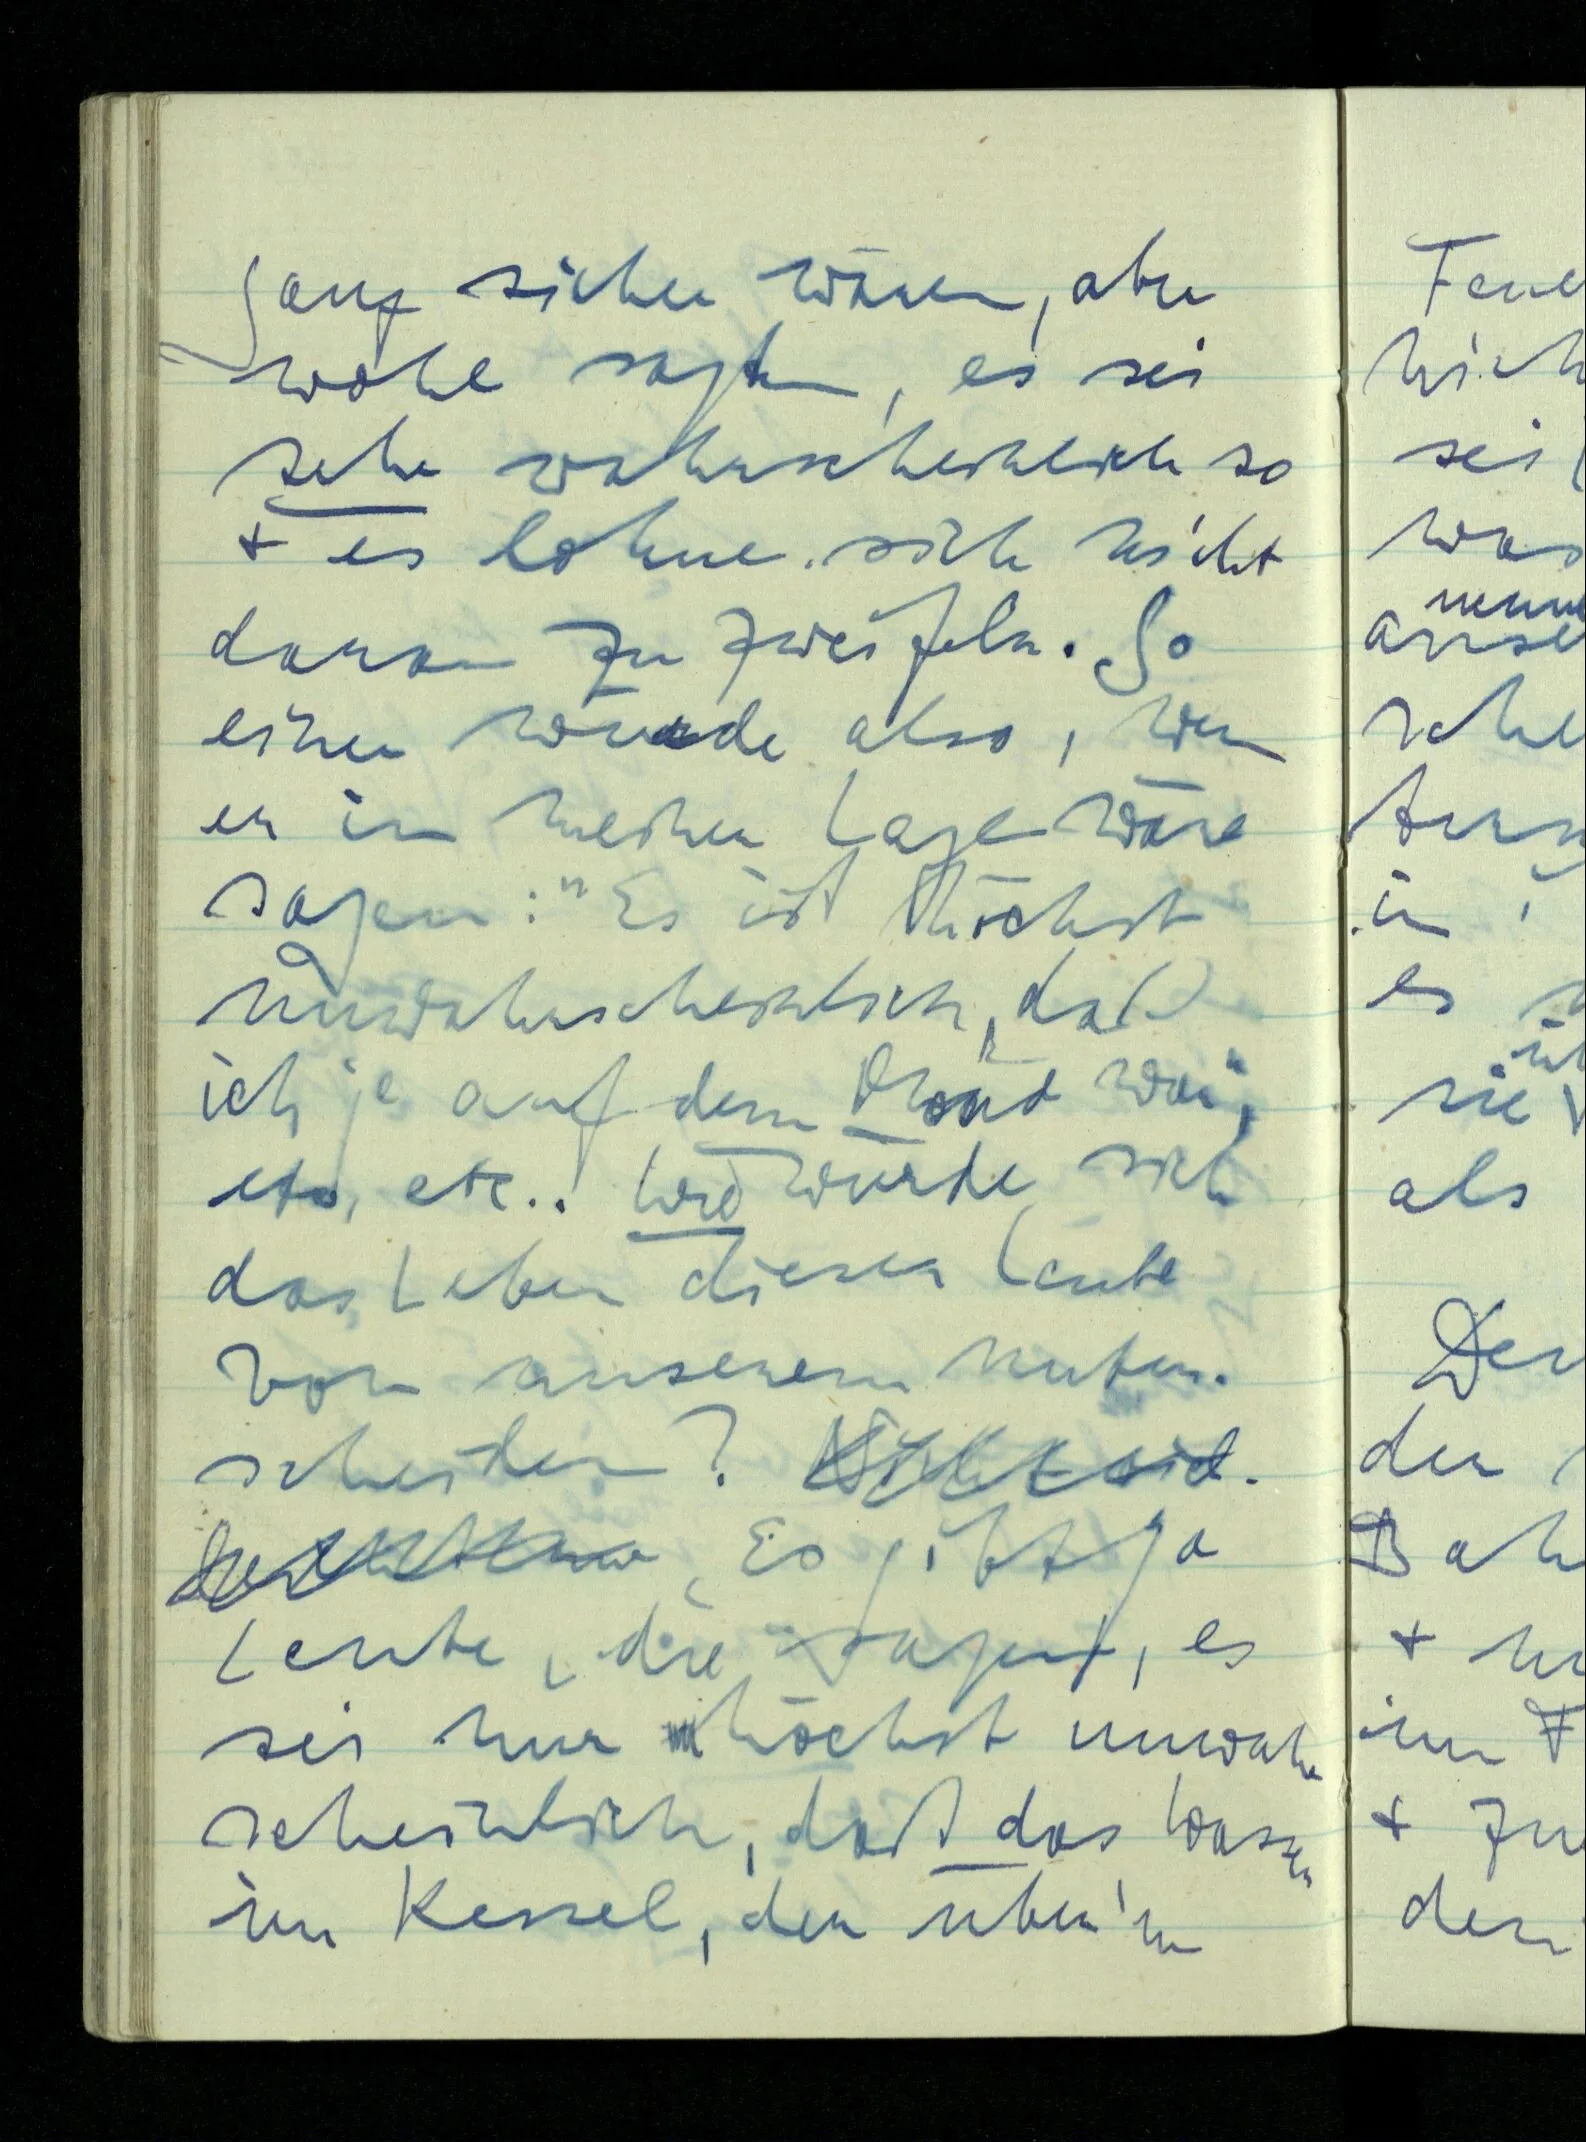 ganz sicher wären, aber
wohl sagten, es sei
sehr wahrscheinlich so
+ es lohne sich nicht
daran zu zweifeln. So
einer würde also, wenn
er in meiner Lage wäre
sagen: "Es ist höchst
unwahrscheinlich, daß
ich je auf dem Mond war",
etc, etc.. Wie würde sich
das Leben dieser Leute
von unserem unter-
scheiden?
Es gibt ja
Leute, die sagen, es
sei nur höchst unwahr
scheinlich, daß das Wasser
im Kessel, der über'm
Feue
nich
sei
was
nenne
anse
sche
in
es
sie
als
Der
den
Bah
+
im F
+ zu
den